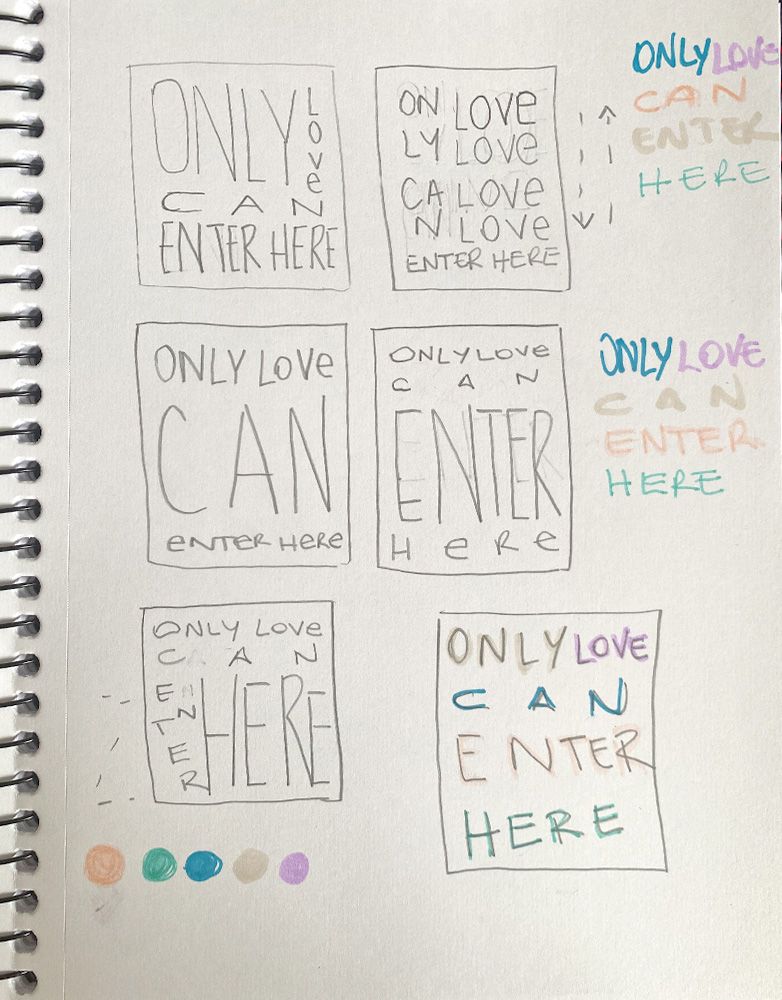 ONLY LOVe
CAN
ENTER HERE
ON LOVe
LY LOVe
CA LOVe
N LOVe
ENTER HERE
ONLY LOVE
CAN
ENTER
HERE
ONLY LOVe
CAN
eNTER HeRe
ONLY LOVe
CAN
ENTER
HeRe
ONLY LOVE
CAN
ENTER
HERE
ONLY LOVe
CAN
ENTER HERE
ONLY LOVE
CAN
ENTER
HERE